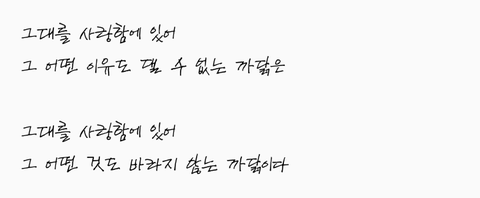 그대를 사랑함에 있어
그 어떤 이유도 댈 수 없는 까닭은
그대를 사랑함에 있어
그 어떤 것도 바라지 않는 까닭이다